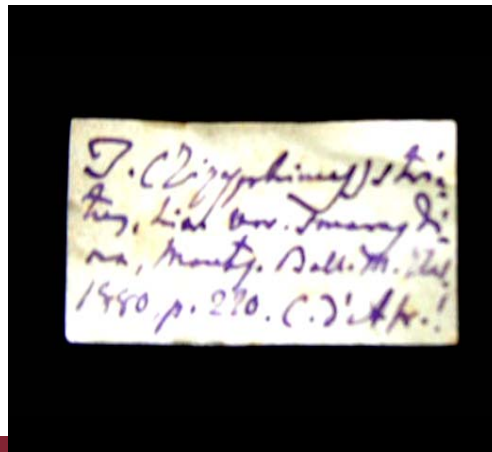 T. (Zizyphinus) stria-
tus, Lin. var. Smaragdi-
na, Monts. Bull. M. Ital.
1880, p. 270. C. d'Afr.!